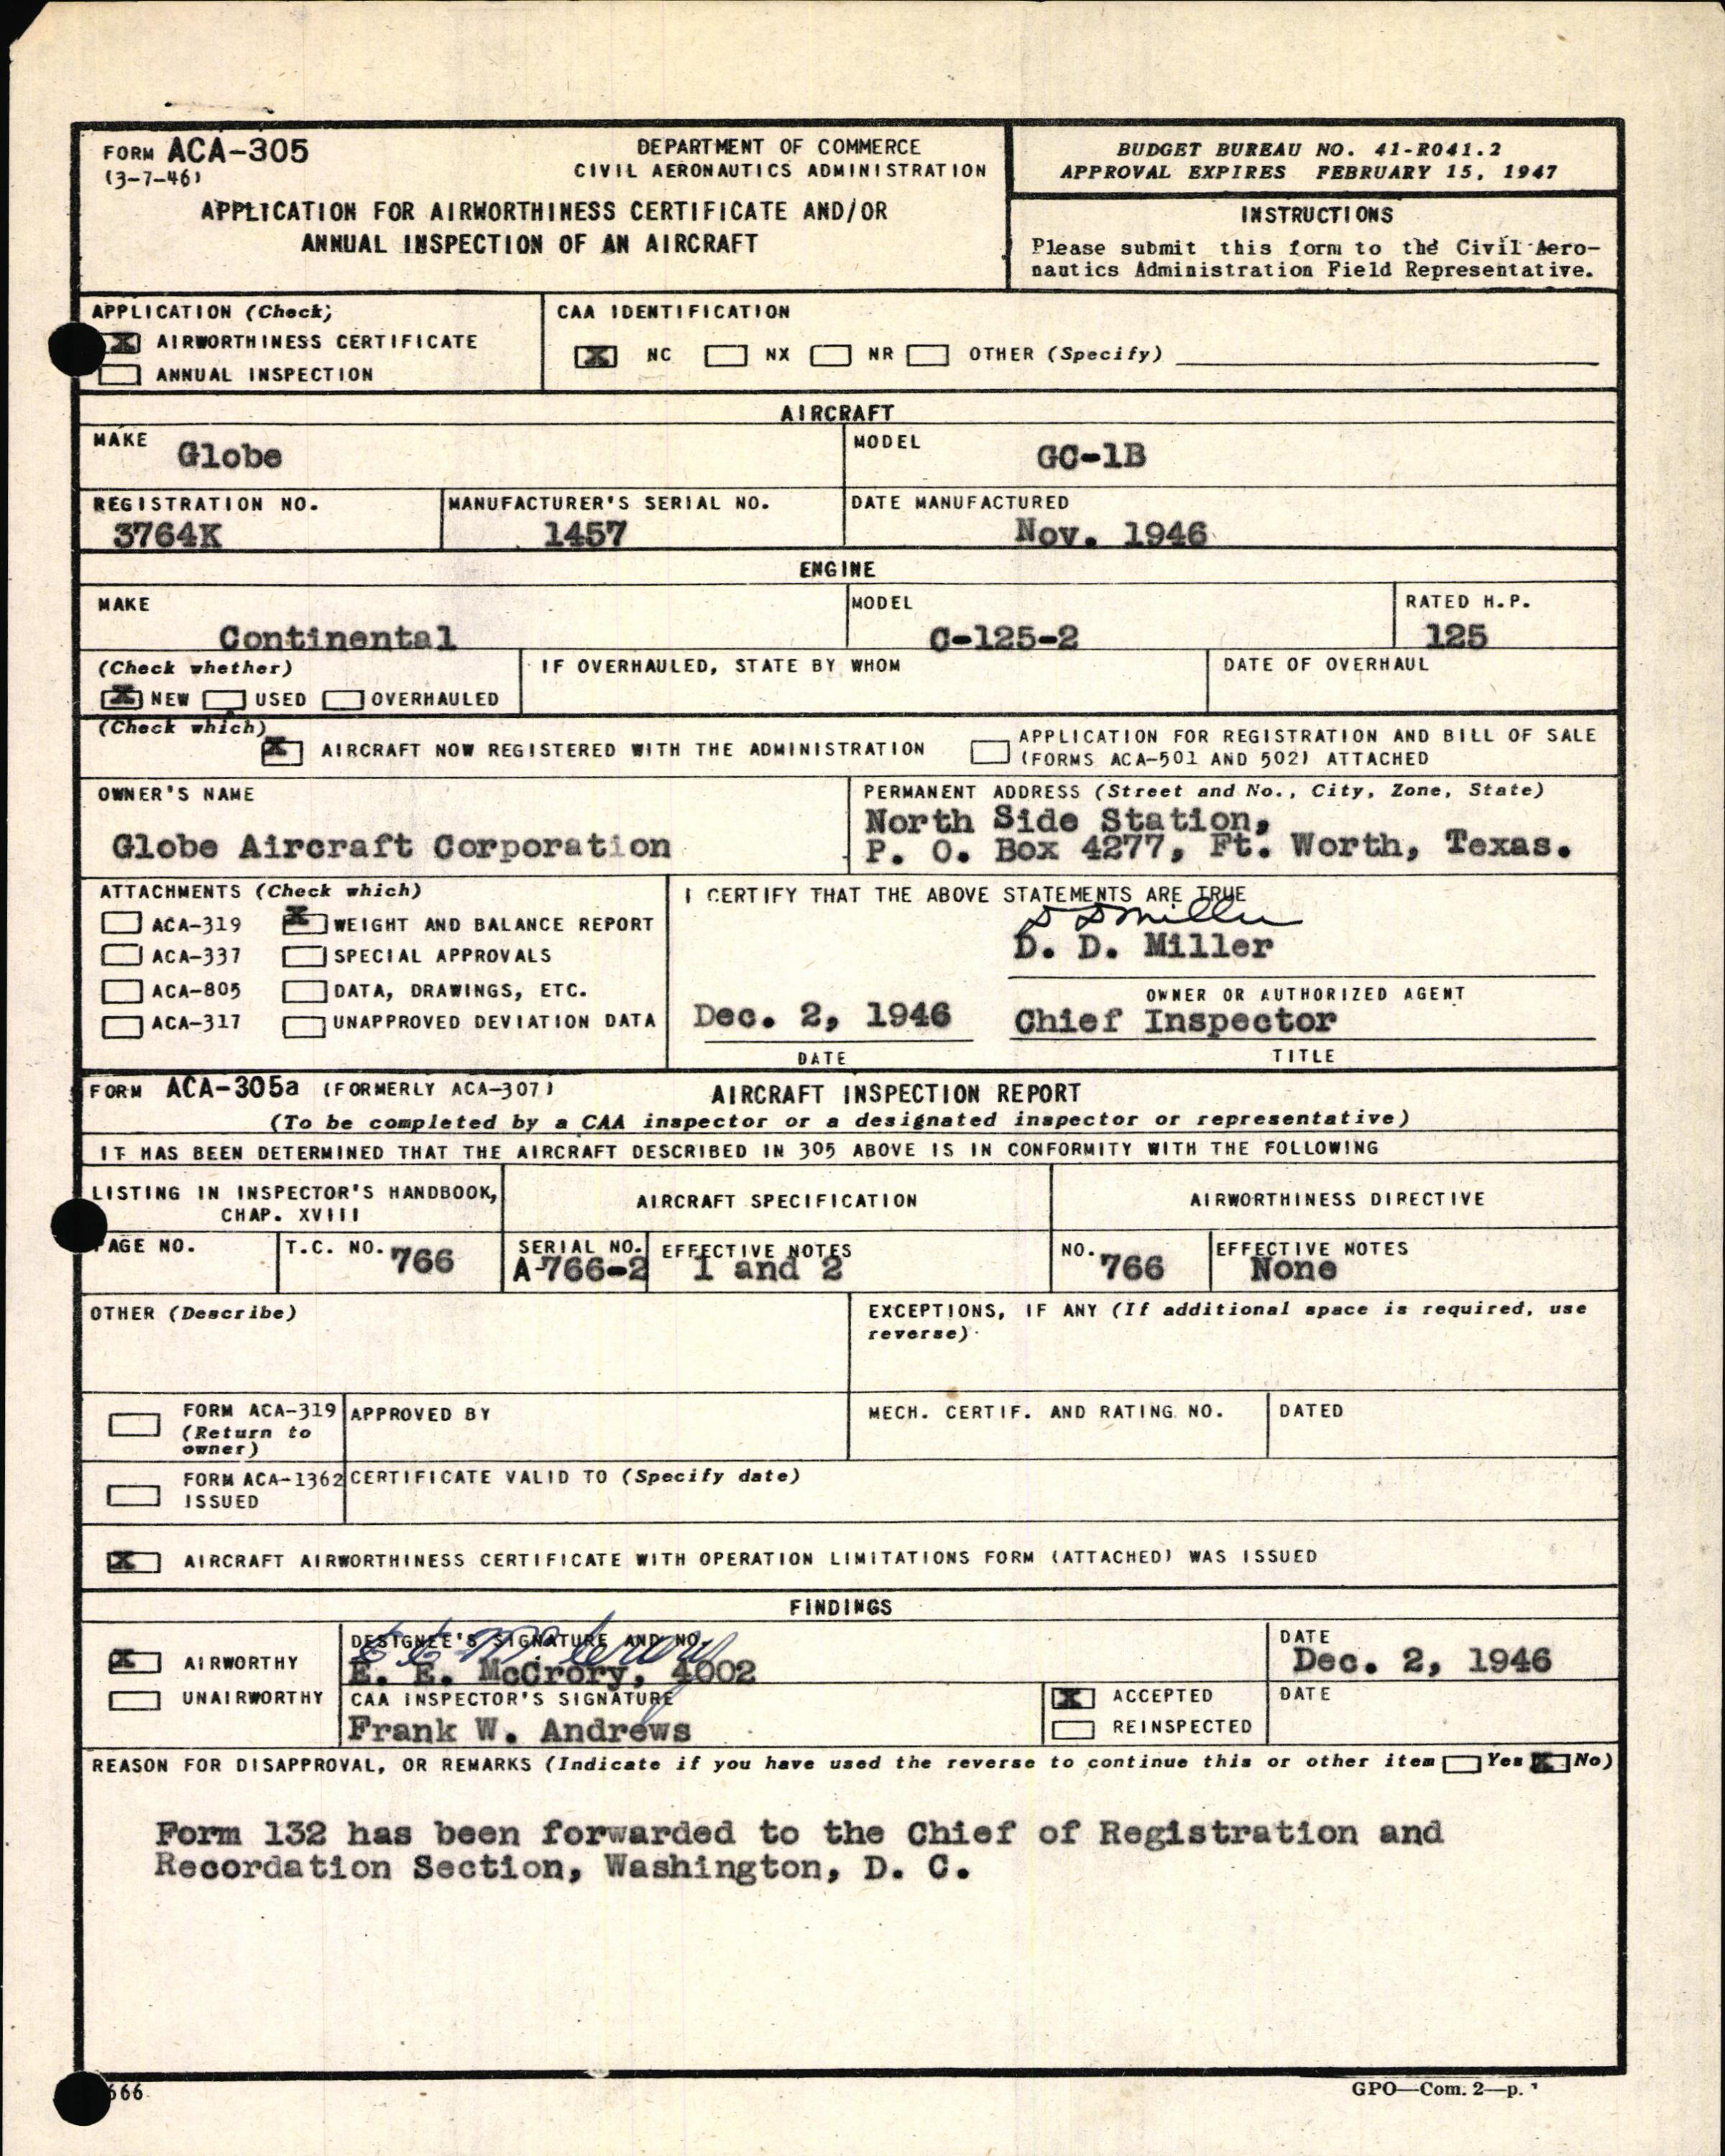 FORM ACA-305
(3-7-46)
DEPARTMENT OF COMMERCE
CIVIL AERONAUTICS ADMINISTRATION
APPLICATION FOR AIRWORTHINESS CERTIFICATE AND/OR
ANNUAL INSPECTION OF AN AIRCRAFT
BUDGET BUREAU NO. 41-R041.2
APPROVAL EXPIRES FEBRUARY 15, 1947
INSTRUCTIONS
Please submit this form to the Civil Aero-
nautics Administration Field Representative.
APPLICATION (Check)
X AIRWORTHINESS CERTIFICATE
ANNUAL INSPECTION
CAA IDENTIFICATION
X NC NX NR OTHER (Specify)
AIRCRAFT
MAKE Globe
MODEL GC-1B
REGISTRATION NO.
3764K
MANUFACTURER'S SERIAL NO.
1457
DATE MANUFACTURED
Nov. 1946
ENGINE
MAKE
Continental
MODEL
C-125-2
RATED H.P.
125
(Check whether)
X NEW USED OVERHAULED
IF OVERHAULED, STATE BY WHOM
DATE OF OVERHAUL
(Check which)
X AIRCRAFT NOW REGISTERED WITH THE ADMINISTRATION
APPLICATION FOR REGISTRATION AND BILL OF SALE
(FORMS ACA-501 AND 502) ATTACHED
OWNER'S NAME
Globe Aircraft Corporation
PERMANENT ADDRESS (Street and No., City, Zone, State)
North Side Station,
P. O. Box 4277, Ft. Worth, Texas.
ATTACHMENTS (Check which)
ACA-319 X WEIGHT AND BALANCE REPORT
ACA-337 SPECIAL APPROVALS
ACA-805 DATA, DRAWINGS, ETC.
ACA-317 UNAPPROVED DEVIATION DATA
I CERTIFY THAT THE ABOVE STATEMENTS ARE TRUE
D D Miller
D. D. Miller
OWNER OR AUTHORIZED AGENT
Dec. 2, 1946 Chief Inspector
DATE TITLE
FORM ACA-305a (FORMERLY ACA-307) AIRCRAFT INSPECTION REPORT
(To be completed by a CAA inspector or a designated inspector or representative)
IT HAS BEEN DETERMINED THAT THE AIRCRAFT DESCRIBED IN 305 ABOVE IS IN CONFORMITY WITH THE FOLLOWING
LISTING IN INSPECTOR'S HANDBOOK,
CHAP. XVIII
AIRCRAFT SPECIFICATION
AIRWORTHINESS DIRECTIVE
PAGE NO.
T.C. NO. 766
SERIAL NO.
A-766-2
EFFECTIVE NOTES
1 and 2
NO. 766
EFFECTIVE NOTES
None
OTHER (Describe)
EXCEPTIONS, IF ANY (If additional space is required, use
reverse)
FORM ACA-319
(Return to
owner)
APPROVED BY
MECH. CERTIF. AND RATING NO.
DATED
FORM ACA-1362
ISSUED
CERTIFICATE VALID TO (Specify date)
X AIRCRAFT AIRWORTHINESS CERTIFICATE WITH OPERATION LIMITATIONS FORM (ATTACHED) WAS ISSUED
FINDINGS
X AIRWORTHY
UNAIRWORTHY
DESIGNEE'S SIGNATURE AND NO.
E E McCrory
E. E. McCrory, 4002
DATE
Dec. 2, 1946
CAA INSPECTOR'S SIGNATURE
Frank W. Andrews
X ACCEPTED
REINSPECTED
DATE
REASON FOR DISAPPROVAL, OR REMARKS (Indicate if you have used the reverse to continue this or other item Yes X No)
Form 132 has been forwarded to the Chief of Registration and
Recordation Section, Washington, D. C.
666
GPO—Com. 2—p.